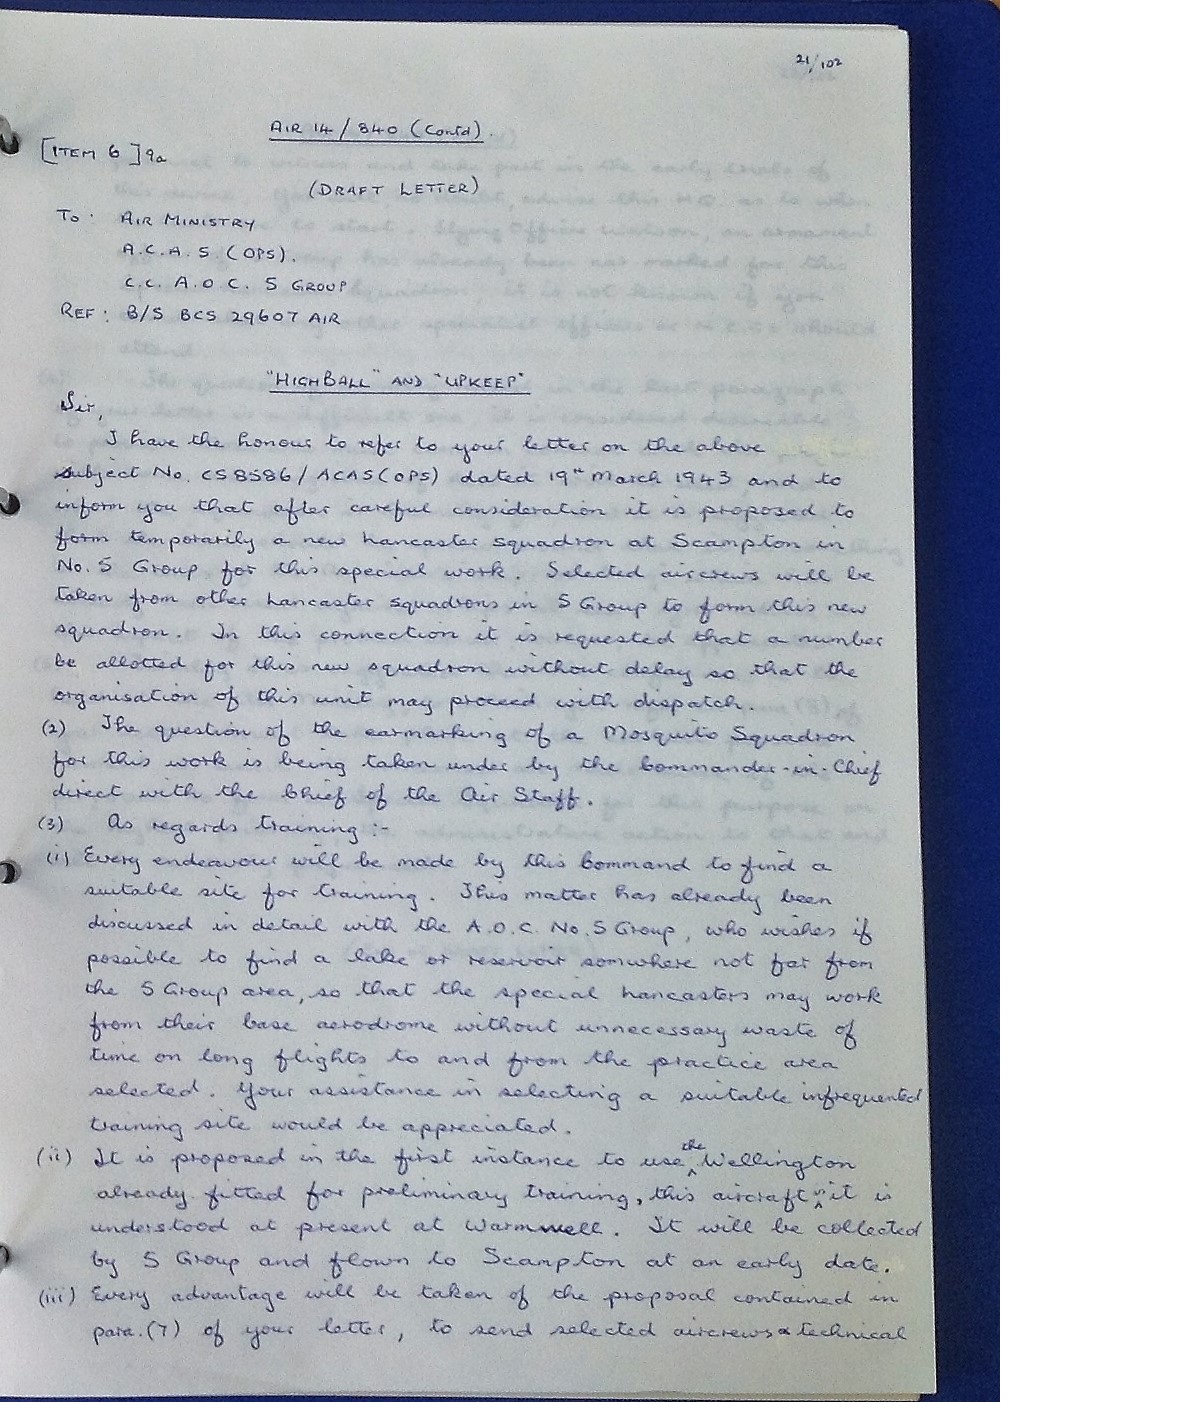 21/102
AIR 14/840 (Contd).
[ITEM 6] 9a
(DRAFT LETTER)
To: AIR MINISTRY
A.C.A.S (OPS).
C.C. A.O.C. 5 GROUP
REF: B/S BCS 29607 AIR
"HIGHBALL" AND "UPKEEP"
Sir,
I have the honour to refer to your letter on the above
subject No. CS8586/ACAS(OPS) dated 19th March 1943 and to
inform you that after careful consideration it is proposed to
form temporarily a new Lancaster squadron at Scampton in
No. 5 Group for this special work. Selected aircrews will be
taken from other Lancaster squadrons in 5 Group to form this new
squadron. In this connection it is requested that a number
be allotted for this new squadron without delay so that the
organisation of this unit may proceed with dispatch.
(2) The question of the earmarking of a Mosquito Squadron
for this work is being taken under by the Commander-in-Chief
direct with the Chief of the Air Staff.
(3) As regards training :-
(i) Every endeavour will be made by this Command to find a
suitable site for training. This matter has already been
discussed in detail with the A.O.C. No. 5 Group, who wishes if
possible to find a lake or reservoir somwhere not far from
the 5 Group area, so that the special Lancasters may work
from their base aerodrome without unnecessary waste of
time on long flights to and from the practice area
selected. Your assistance in selecting a suitable infrequented
training site would be appreciated.
(ii) It is proposed in the first instance to use the Wellington
already fitted for preliminary training, this aircraft is it is
understood at present at Warmwell. It will be collected
by 5 Group and flown to Scampton at an early date.
(iii) Every advantage will be taken of the proposal contained in
para. (7) of your letter, to send selected aircrews & technical